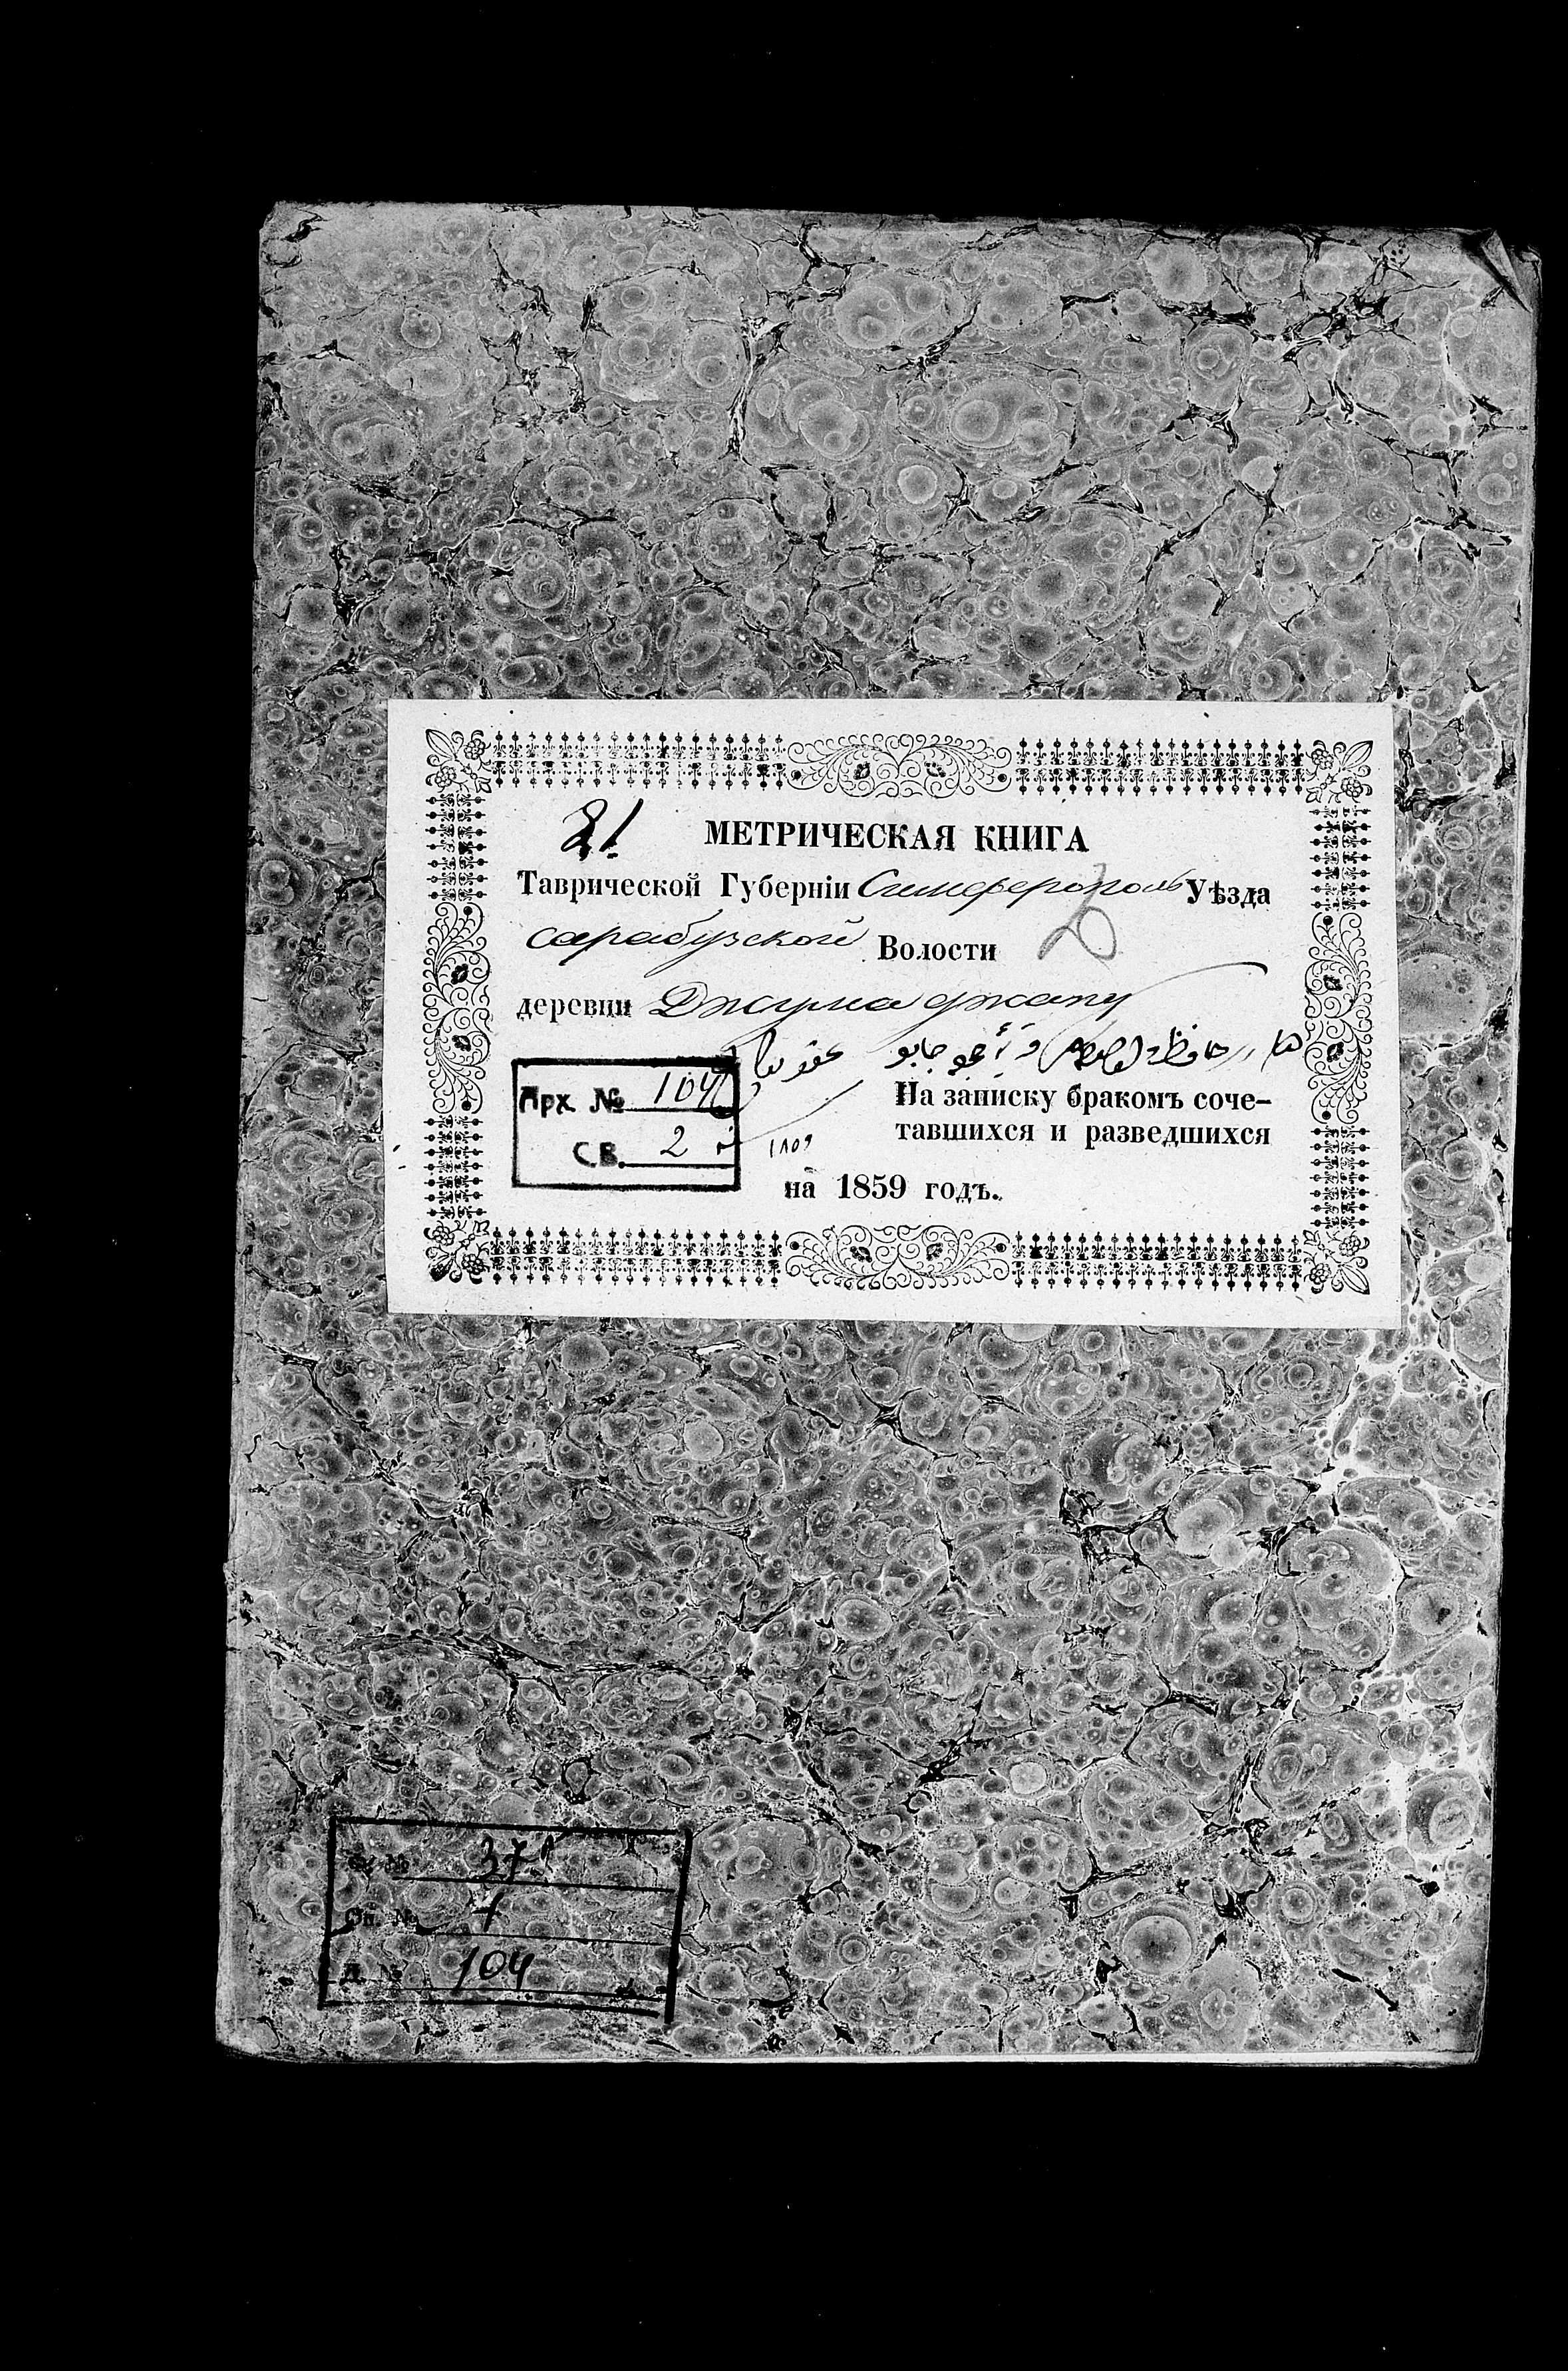 21.
МЕТРИЧЕСКАЯ КНИГА
Таврической Губерніи Симферополь Уѣзда
сарабузской Волости
деревни Джума джапу
Арх № 104
СВ. 2
На записку бракомъ соче-
тавшихся и разведшихся
١٨٥٩
на 1859 годъ.
371
Оп. № 1
Д. № 104